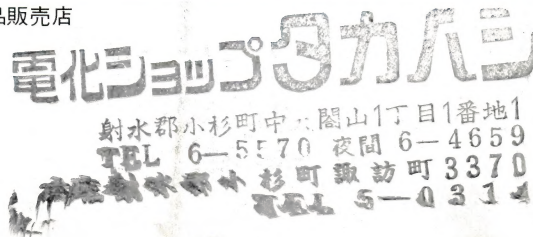 品販売店
電化ショップタカハシ
射水郡小杉町中 閣山1丁目1番地1
TEL 6-5570 夜間 6-4659
小杉町諏訪町3370
TEL 5-0314